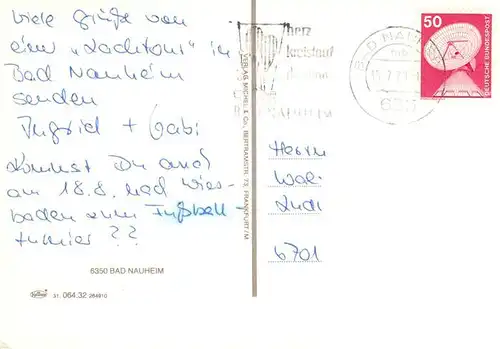 viele Grüße von
einer "Radtour" in
Bad Nauheim
senden
Ingrid + Gabi
Kommst Du auch
am 18.8. nach Wies-
baden zum Fußball-
turnier ??
6350 BAD NAUHEIM
51 064.32 284910
VERLAG MICHEL & CO., BERTRAMSTR. 73, FRANKFURT/M
herz
kreislauf
BAD NAUHEIM
50
DEUTSCHE BUNDESPOST
Herrn
6701